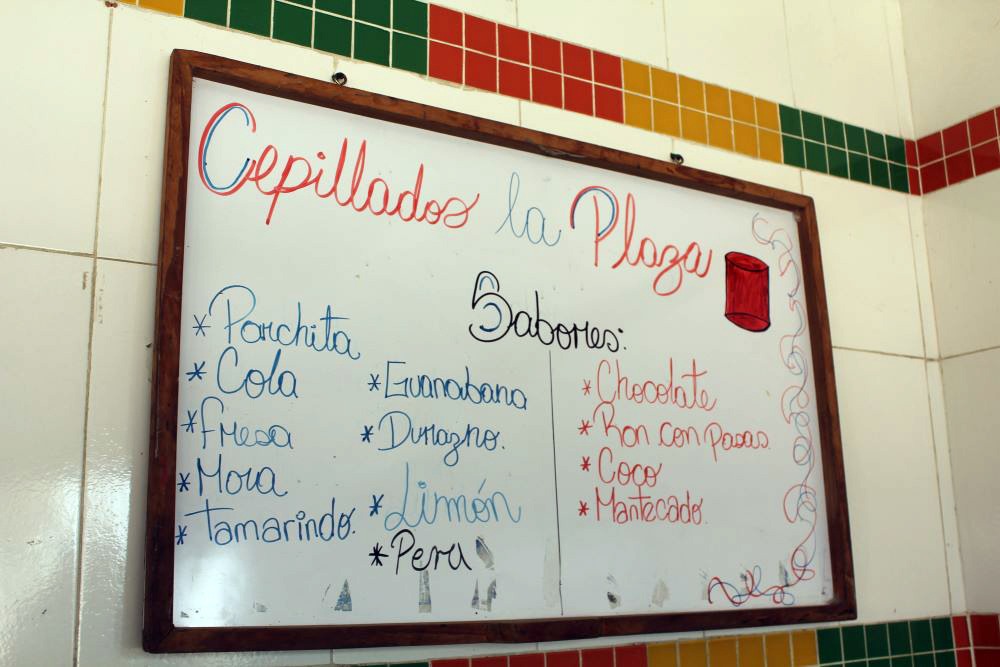 Cepillados la Plaza
Sabores:
* Parchita
* Cola
* fresa
* Mora
* Tamarindo.
* Guanabana
* Durazno.
* Limón
* Peru
* Chocolate
* Ron con pasas.
* Coco
* Mantecado.